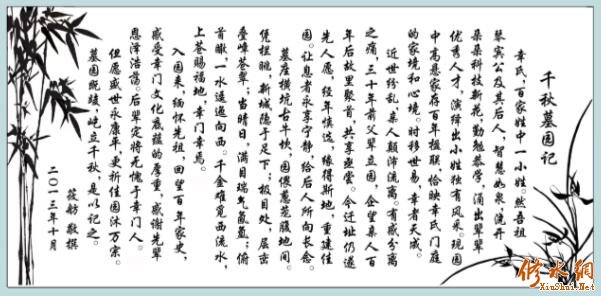 千秋墓园记
幸氏,百家姓中一小姓。然吾祖
琴宾公及其后人,智慧如泉,流开
朵朵科技新花,勤勉恭学,涌出辈辈
优秀人才,演绎出小姓独有风采。现园
中高悬家存百年楹联,恰映幸氏门庭
的家境和心境。时移世易,幸者天成。
近世纷乱,亲人颠沛流离。有感分离
之痛,三十年前父辈立园,企望亲人百
年后故里聚首,共享。今迁址仍遵
先人愿,经年慎选,缘得斯地,重建佳
园。让息者永享宁静,给后人所向长念。
墓座横坑古牛坎,园偎葱茏腹地间。
凭眺,新城隐于足下;极目处,层峦
叠嶂苍翠;当晴日,满目瑞气氤氲;俯
首瞰,一水逶迤向西。千金难觅西流水,
上苍赐福地,幸门幸焉。
入园来,缅怀先祖,回望百年家史,
感受幸门文化底蕴的厚重,感谢先辈
恩泽浩荡。后辈定将无愧于幸门人。
但愿盛世永康年,更祈佳园沐万宗。
墓园既竣,屹立千秋,是以记之。
筱舫 敬撰
二〇一三年十月
修水網
XiuShui.Net